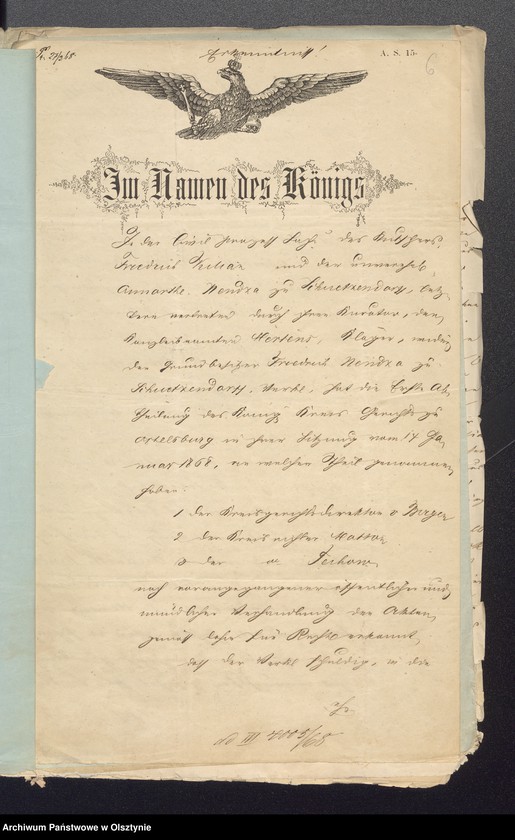 Erkenntniß!
A. S. 15.
6
Im Namen des Königs
In der Civil Prozeß Sache des Kutschers
Friedrich und der unverehel.
Annorthe Kendza zu Schuetzendorf, letz-
tere vertreten durch ihren Kurator, den
Kanzleibeamten Mertens, Kläger, wider
den Grundbesitzer Friedrich Kendza zu
Schuetzendorf, Verkl. hat die Erste Ab-
theilung des Königl Kreis Gerichts zu
Ortelsburg in ihrer Sitzung vom 14 Ja-
nuar 1868, an welcher Theil genommen
haben:
1 der Kreisgerichtsdirektor v
2 der Kreisrichter
3 der
nach vorangegangener öffentlicher und
mündlicher Verhandlung den Akten
gemäß für Recht erkannt,
daß der Verkl schuldig, in die
Archiwum Państwowe w Olsztynie